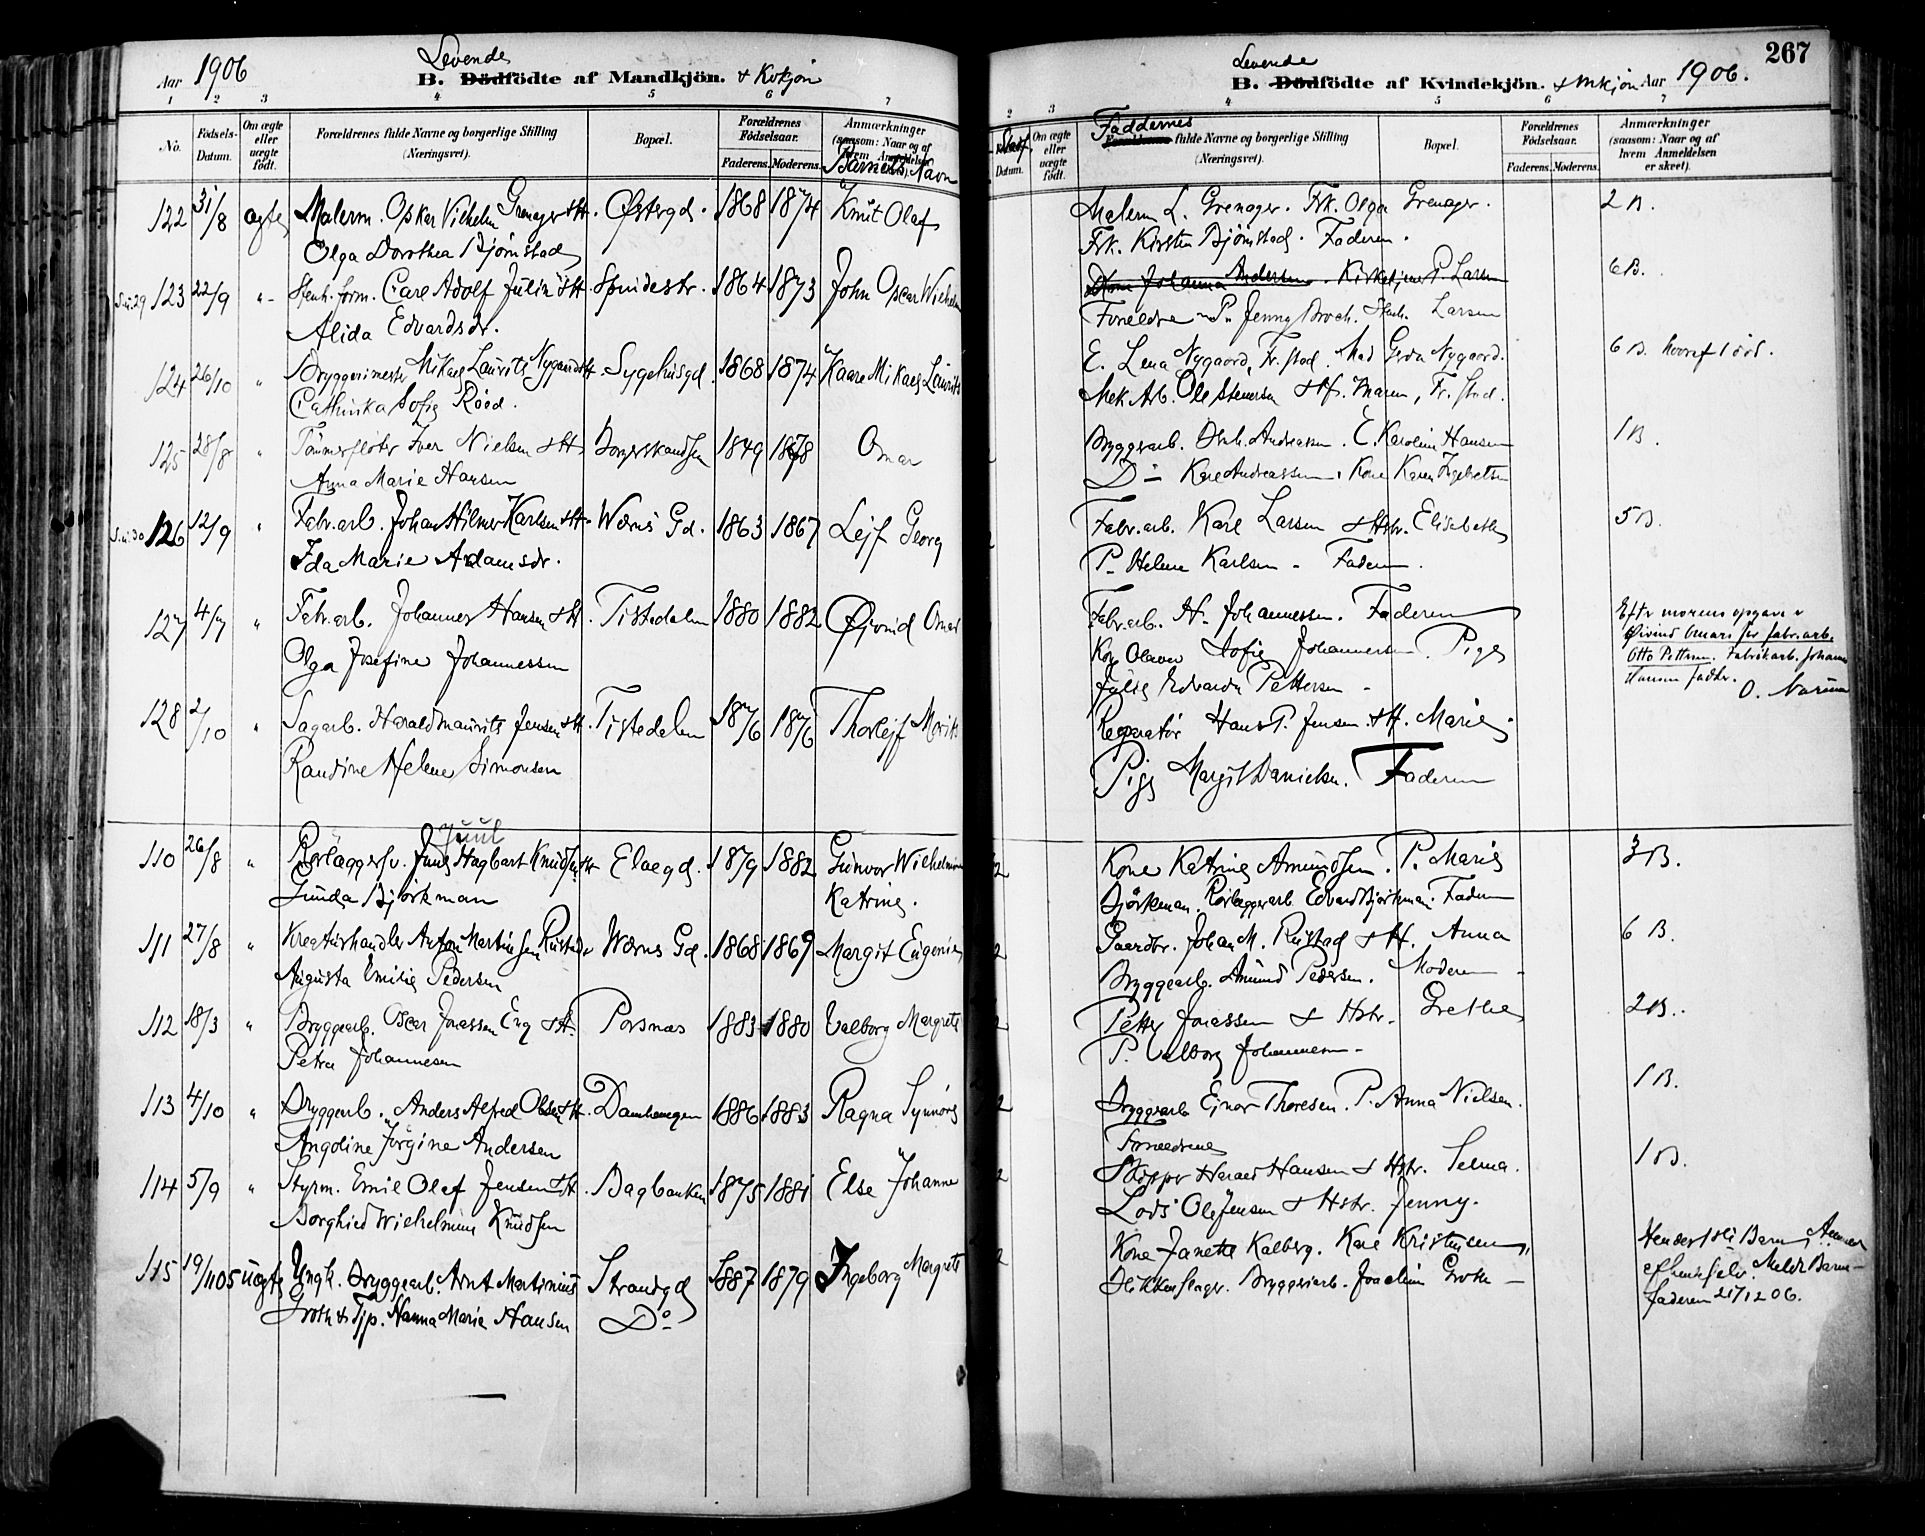 Aar 1906
Levende
B. Dödfödte af Mandkjön. & Kvkjön
1 2 3 4 5 6 7
No.
Födsels-Datum.
Om ægte eller uægte födt.
Forældrenes fulde Navne og borgerlige Stilling (Næringsvei).
Bopæl.
Forældrenes Födselsaar.
Faderens. Moderens.
Anmærkninger (saasom: Naar og af hvem Anmeldelsen
Barnets Navn
122 31/8 ægte Malerm. Oskar Vilhelm Grenager & H. Østergd. 1868 1874 Knut Olaf
Olga Dorothea Bjørnstad
S.nr. 29 123 22/9 " Stenh. form. Carl Adolf Julin & H. Spindestr. 1864 1873 John Oscar Wilhelm
Alida Edvardsdr.
124 26/10 " Bryggerimester Mikael Laurits Nygaard & H. Sygehusgd. 1868 1874 Kaare Mikael Laurits
Cathinka Sofie Röed.
125 28/8 " Tømmerfløter Iver Nielsen & H. 1849 1878 Omar
Anna Marie Hansen
S.nr. 30 126 12/9 " Fabr.arb. Johan Hilmer Karlsen & H. Wærns Gd. 1863 1867 Lejf Georg
Ida Marie Adamsdr.
127 4/7 " Fabr.arb. Johannes Hansen & H. Tistedalen 1880 1882 Øjvind Omar
Olga Josefine Johannessen
128 2/10 " Sagarb. Harald Maurits Jensen & H. Tistedalen 1876 1876 Thorlejf Morits
Randine Helene Simonsen
Juul
110 26/8 " Rørlæggersv. Juul Hagbart Knudsen & H. Elvegd. 1879 1882 Gunvor Wilhelmine
Gunda Björkman Katrine.
111 27/8 " Kreaturhandler Anton Martinsen Rustad Wærns Gd. 1868 1869 Margit Eugenie
Augusta Emilie Pedersen
112 18/3 " Bryggearb. Oscar Jonassen Eng & H. Porsnæs 1883 1880 Valborg Margrete
Petra Johannesen
113 4/10 " Bryggearb. Anders Alfred Olsen & H. Damhaugen 1886 1883 Ragna Synnöve
Angoline Jörgine Andersen
114 5/9 " Styrm. Emil Olaf Jensen & H. Bagbanken 1875 1881 Else Johanne
Borghild Wilhelmine Knudsen
115 19/11 05 uægte Ungk. Bryggearb. Arnt Martinius Strandgd 1887 1879 Ingeborg Margrete
Groth & Tjp. Hanna Marie Hansen Do
267
Levende
B. Dödfödte af Kvindekjön. & Mkjön Aar 1906.
2 3 4 5 6 7
Datum.
Om ægte eller uægte födt.
Faddernes
Forældrenes fulde Navne og borgerlige Stilling (Næringsvei).
Bopæl.
Forældrenes Födselsaar.
Faderens. Moderens.
Anmærkninger (saasom: Naar og af hvem Anmeldelsen er skeet).
Malerm L. Grenager. Frk. Olga Grenager. 2 B.
Frk. Kirsten Bjørnstad. Faderen.
Kone Johanna Andersen. Kirketjener P. Larsen 6 B.
Forældre P. Jenny Broch. Stenh. Larsen
E. Lena Nygaard, Fr.stad. Mad Gerda Nygaard. 6 B. hvoraf 1 död.
Mek Arb. Ole Stenersen & Hf. Maren, Fr.stad.
Bryggearb. Andreassen. E. Karoline Hansen 1 B.
Do Karl Andreassen. Kone Karen Ingebretsen
Fabr.arb. Karl Larsen & Hstr. Elisabeth 5 B.
P. Helene Karlsen. Faderen.
Fabr.arb. H. Johannessen. Faderen
Kone Olava Sofie Johannessen. Pige
Julie Edvarda Pettersen
Efter morens opgave er
Øivind Omars far fabr.arb.
Otto Pettersen. Fabrikarb. Johannes
Hansen fadder.
Reparatör Hans P. Jensen & H. Marie.
Pige Margit Danielsen. Faderen
2 Kone Katrine Amundsen. P. Marie 3 B.
Björkman. Rørlæggerarb Edvard Björkman. Faderen
2 Gaardbr. Johan M. Rustad & H. Anna 6 B.
Bryggearb. Amund Pedersen. Moderen
2 Petter Jonassen & Hstr. Grethe 2 B.
P. Valborg Johannesen
2 Bryggearb Ejnar Thoresen. P. Anna Nielsen. 1 B.
Forældrene
2 Skipper Harald Hansen & Hstr. Selma. 1 B.
Lods Ole Jensen & Hstr. Jenny.
2 Kone Janette Kalberg. Karl Kristensen
Bryggeriarb. Joachim Groth
Hendes Barn,
Meldt Barne-
faderen 21/12 06.